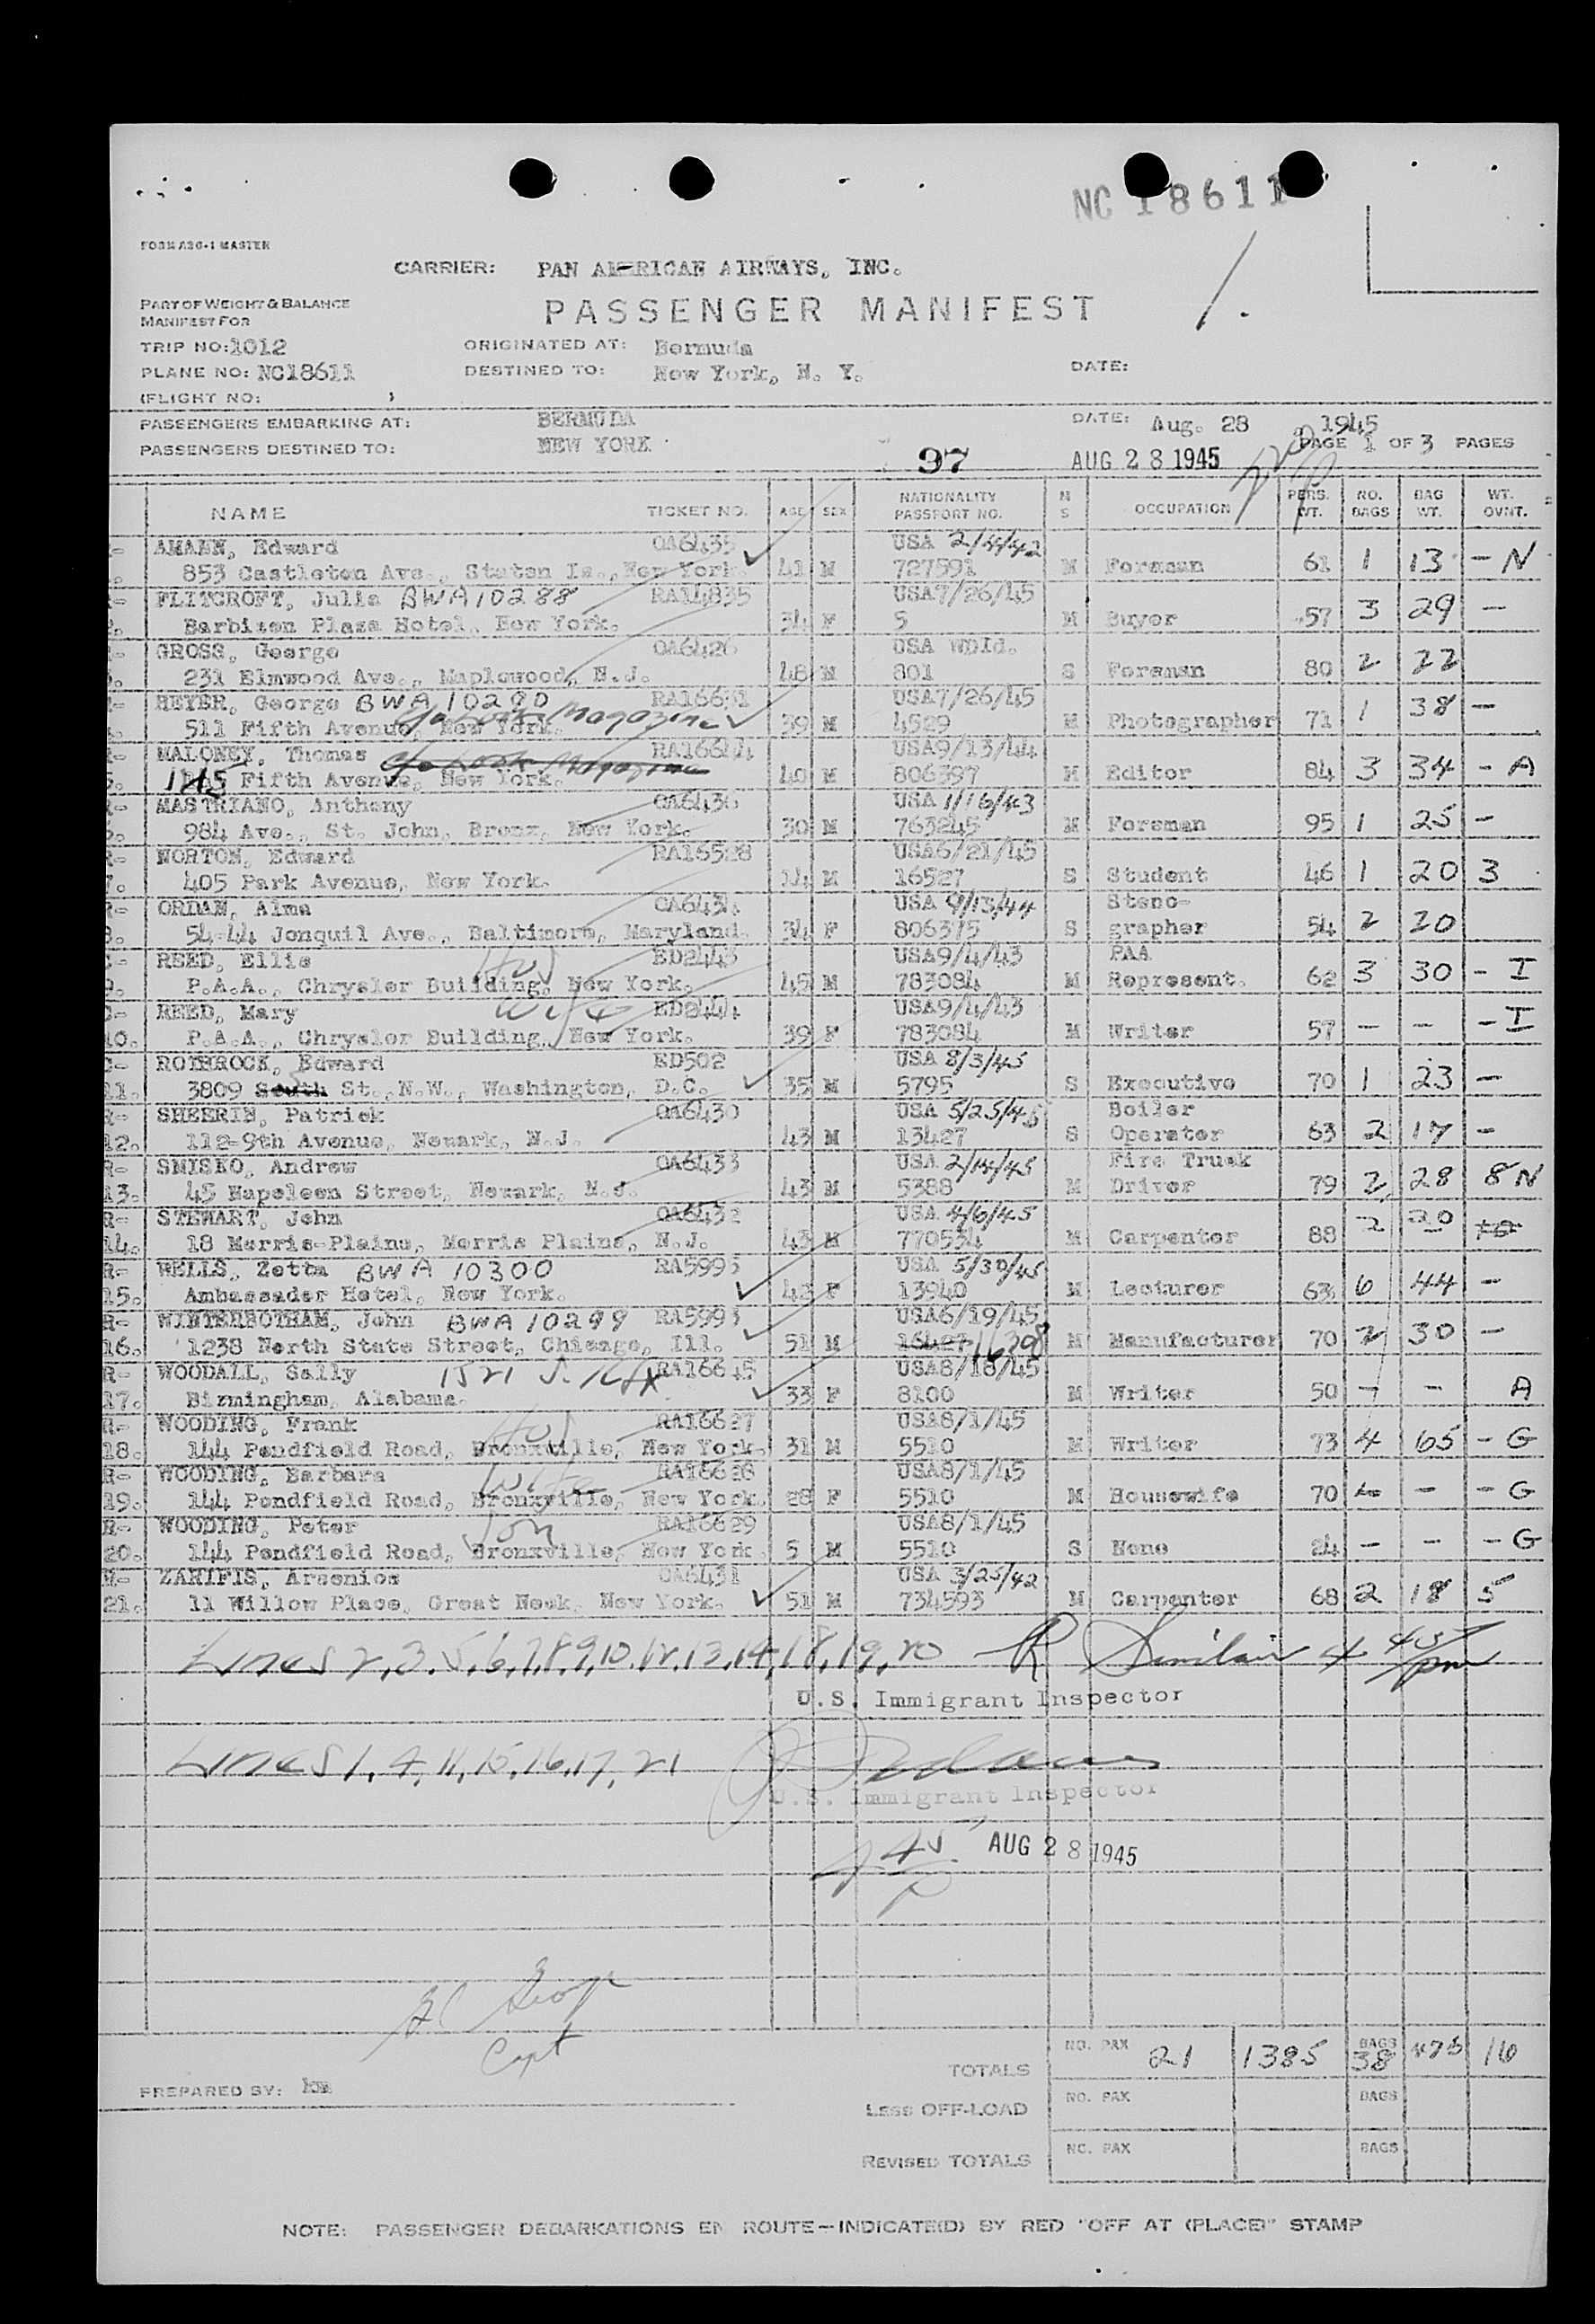 NC 18611
FORM ASG-1 MASTER
CARRIER: PAN AMERICAN AIRWAYS, INC.
PART OF WEIGHT & BALANCE
MANIFEST FOR
PASSENGER MANIFEST
TRIP NO: 1012 ORIGINATED AT: Bermuda
PLANE NO: NC18611 DESTINED TO: New York, N. Y. DATE:
(FLIGHT NO: )
PASSENGERS EMBARKING AT: BERMUDA DATE: Aug. 28 1945
PASSENGERS DESTINED TO: NEW YORK PAGE 1 OF 3 PAGES
97 AUG 28 1945
NAME TICKET NO. AGE SEX NATIONALITY PASSPORT NO. M S OCCUPATION PERS. WT. NO. BAGS BAG WT. WT. OVNT.
R- AMANN, Edward OA6435 USA 2/4/42
853 Castleton Ave., Staten Is., New York. 41 M 727591 M Foreman 61 1 13 - N
R- FLITCROFT, Julia BWA10288 RA14835 USA7/26/45
Barbizon Plaza Hotel, New York. 34 F 5 M Buyer 57 3 29 -
GROSS, George OA6426 USA WDId.
231 Elmwood Ave., Maplewood, N.J. 48 M 801 S Foreman 80 2 22
HEYER, George BWA 10290 RA16631 USA7/26/45
511 Fifth Avenue, New York. c/o Look Magazine 39 M 4529 M Photographer 71 1 38 -
MALONEY, Thomas c/o Look Magazine RA16644 USA9/13/44
Fifth Avenue, New York. 40 M 806397 M Editor 84 3 34 - A
R- MASTRIANO, Anthony OA6436 USA 1/16/43
984 Ave., St. John, Bronx, New York. 30 M 763245 M Foreman 95 1 25 -
R- NORTON, Edward RA16528 USA6/21/45
7. 405 Park Avenue, New York. 14 M 16527 S Student 46 1 20 3
R- ORDAN, Alma OA6434 USA 9/13/44 Steno-
8. 54-44 Jonquil Ave., Baltimore, Maryland. 34 F 806375 S grapher 54 2 20
C- REED, Ellis Hus ED2443 USA9/4/43 PAA
9. P.A.A., Chrysler Building, New York. 45 M 783084 M Represent. 62 3 30 - I
C- REED, Mary wife ED2444 USA9/4/43
10. P.A.A., Chrysler Building, New York. 39 F 783084 M Writer 57 - - - I
C- ROTHROCK, Edward ED502 USA 8/3/45
11. 3809 South St., N.W., Washington, D.C. 35 M 5795 S Executive 70 1 23 -
R- SHEERIN, Patrick OA6430 USA 5/25/45 Boiler
12. 112-9th Avenue, Newark, N.J. 43 M 13427 S Operator 63 2 17 -
R- SMISKO, Andrew OA6433 USA 2/14/45 Fire Truck
13. 45 Napoleon Street, Newark, N.J. 43 M 5388 M Driver 79 2 28 8 N
R- STEWART, John OA6432 USA 4/6/45
14. 18 Morris-Plains, Morris Plains, N.J. 43 M 770534 M Carpenter 88 2 20
R- WELLS, Zetta BWA 10300 RA5995 USA 5/30/45
15. Ambassador Hotel, New York. 42 F 13940 M Lecturer 63 6 44 -
R- WINTERBOTHAM, John BWA 10299 RA5993 USA6/19/45
16. 1238 North State Street, Chicago, Ill. 51 M 16427 16308 M Manufacturer 70 2 30 -
R- WOODALL, Sally 1521 S. RA16645 USA8/18/45
17. Birmingham, Alabama. 33 F 8100 M Writer 50 - - A
R- WOODING, Frank Hus RA16627 USA8/1/45
18. 144 Pondfield Road, Bronxville, New York. 31 M 5510 M Writer 73 4 65 - G
R- WOODING, Barbara Wife RA16628 USA8/1/45
19. 144 Pondfield Road, Bronxville, New York. 28 F 5510 M Housewife 70 - - - G
R- WOODING, Peter Son RA16629 USA8/1/45
20. 144 Pondfield Road, Bronxville, New York. 5 M 5510 S None 24 - - - G
R- ZARIFIS, Arsenios OA6431 USA 3/25/42
21. 11 Willow Place, Great Neck, New York. 51 M 734593 M Carpenter 68 2 18 5
Lines 2,3,5,6,7,8,9,10,12,13,14,18,19,20 R Sinclair 4 45/pm
U.S. Immigrant Inspector
Lines 1, 4, 11, 15, 16, 17, 21
U.S. Immigrant Inspector
4 45 p AUG 28 1945
Capt
TOTALS NO. PAX 21 1385 BAGS 38 473 16
PREPARED BY:
LESS OFF-LOAD NO. PAX BAGS
REVISED TOTALS NO. PAX BAGS
NOTE: PASSENGER DEBARKATIONS EN ROUTE—INDICATE(D) BY RED "OFF AT (PLACE)" STAMP